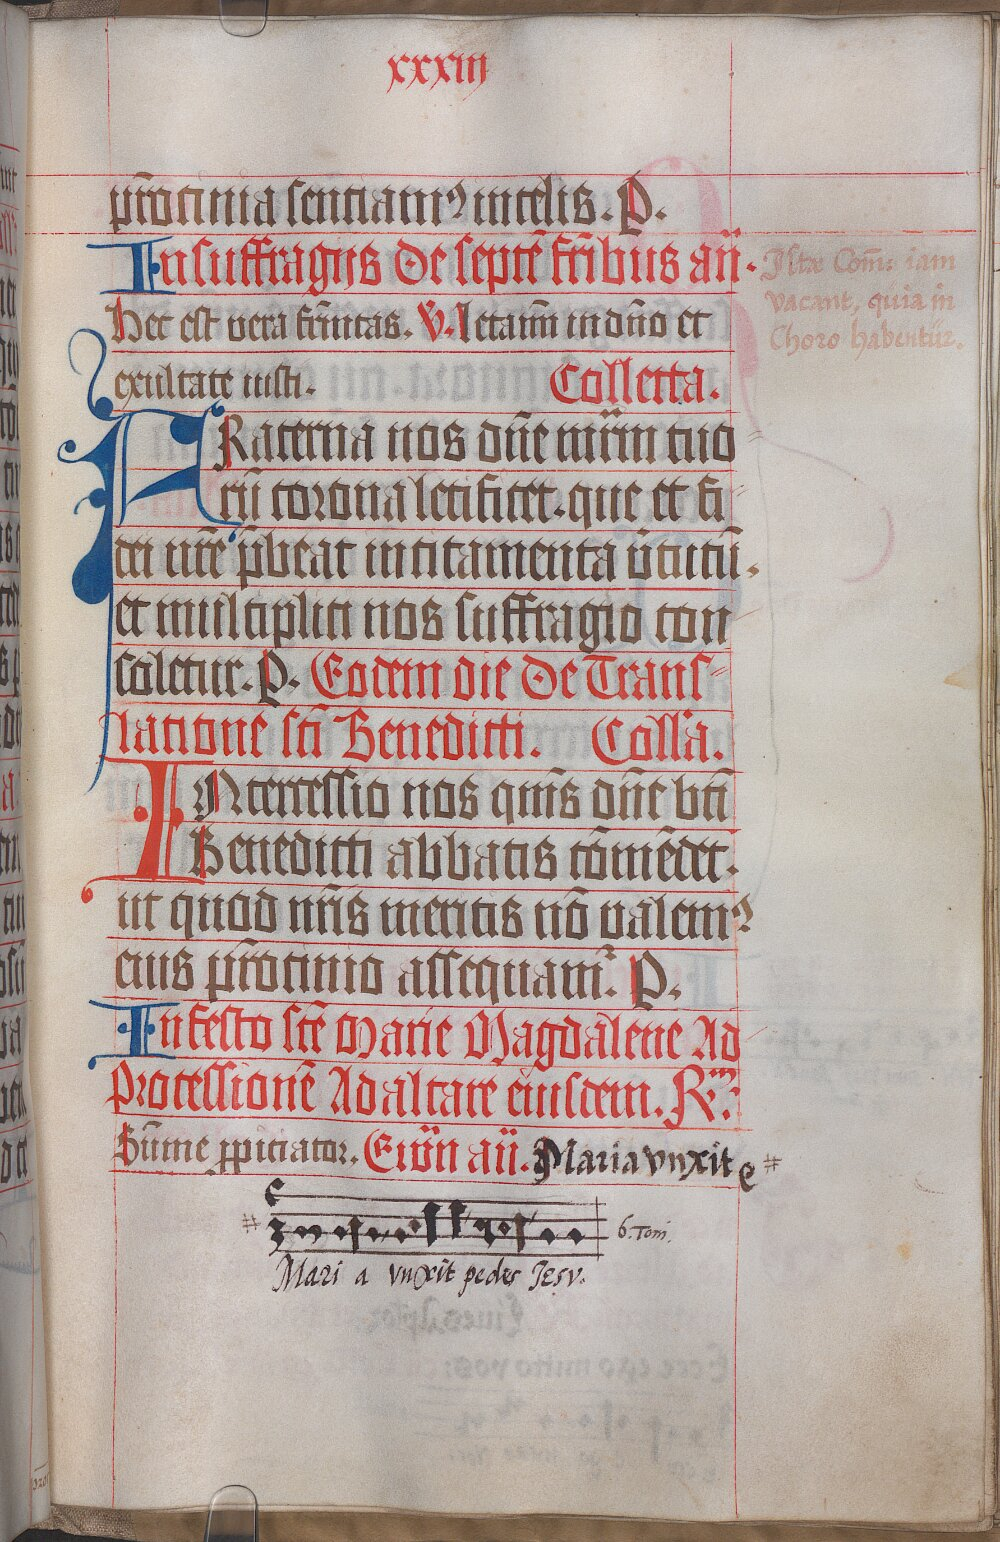 xxxiii
pr̄ocinia senciamꝰ in celis. P.
In suffragijs de septē fr̄ibus añ.
Hec est vera fr̄nitas. V. letamī in dn̄o et
exultate iusti. Collecta.
FRaterna nos dn̄e mr̄im tuo
rū corona letificet. que et fi
dei nr̄e p̄beat incitamenta v̄tutū.
et multiplici nos suffragio con
soletur. P. Eodem die de Trans-
latione sc̄i Benedicti. Coll̄a.
INtercessio nos qm̄s dn̄e bt̄i
Benedicti abbatis cōmēdet.
ut quod nr̄is meritis nō valemꝰ
eius pr̄ocinio assequamr̄. P.
In festo sc̄e Marie Magdalene Ad
Processionē Ad altare eiusdem. Rm̄.
Sum̄e ꝓpiciator. Ewn̄ añ. Maria vnxit
6. Toni.
Mari a vnxit pedes Jesv.
Istæ Com̄: iam
vacant, quia in
Choro habentur.